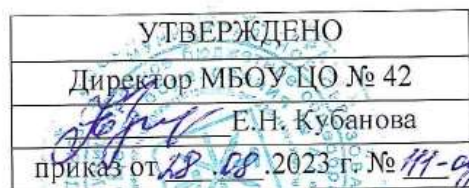 УТВЕРЖДЕНО
Директор МБОУ ЦО № 42
Е.Н. Кубанова
приказ от 28.08.2023 г. № 111-о